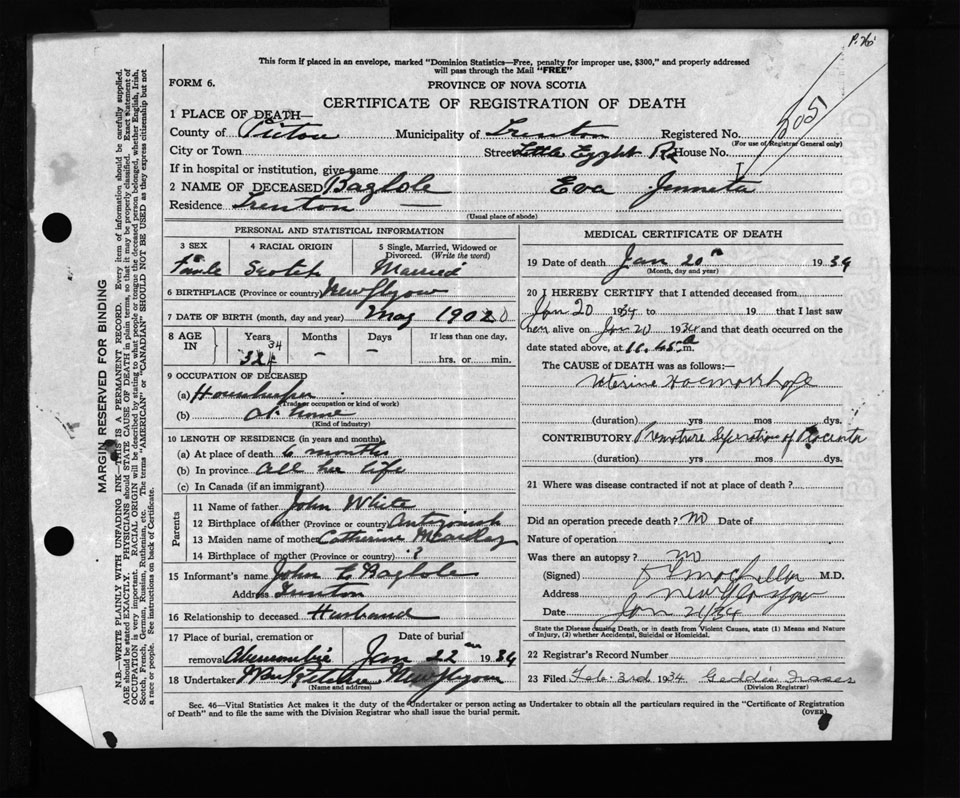 P. 76
This form if placed in an envelope, marked "Dominion Statistics—Free, penalty for improper use, $300," and properly addressed
will pass through the Mail "FREE"
FORM 6.
PROVINCE OF NOVA SCOTIA
CERTIFICATE OF REGISTRATION OF DEATH
1 PLACE OF DEATH—
County of Pictou Municipality of Trenton Registered No.
(For use of Registrar General only)
City or Town Street Little Egypt Rd House No.
If in hospital or institution, give name
2 NAME OF DECEASED Baglole Eva Jenneta
Residence Trenton
(Usual place of abode)
PERSONAL AND STATISTICAL INFORMATION
3 SEX 4 RACIAL ORIGIN 5 Single, Married, Widowed or Divorced. (Write the word)
Female Scotch Married
6 BIRTHPLACE (Province or country) New Glasgow
7 DATE OF BIRTH (month, day and year) May 190
8 AGE IN } Years Months Days If less than one day,
34 - - hrs. or min.
9 OCCUPATION OF DECEASED
(a) Housekeeper
(Trade or occupation or kind of work)
(b) at home
(Kind of industry)
10 LENGTH OF RESIDENCE (in years and months)
(a) At place of death 6 months
(b) In province all her life
(c) In Canada (if an immigrant)
Parents
11 Name of father John White
12 Birthplace of father (Province or country) Antigonish
13 Maiden name of mother Catherine
14 Birthplace of mother (Province or country) ?
15 Informant's name John E Baglole
Address Trenton
16 Relationship to deceased Husband
17 Place of burial, cremation or Date of burial
removal Abercrombie Jan 22 1934
18 Undertaker New Glasgow
(Name and address)
MEDICAL CERTIFICATE OF DEATH
19 Date of death Jan 20th 1934
(Month, day and year)
20 I HEREBY CERTIFY that I attended deceased from
Jan 20 1934 to 19 that I last saw
her alive on Jan 20 1934 and that death occurred on the
date stated above, at 11.45 a m.
The CAUSE of DEATH was as follows:—
Uterine Haemorrhage
(duration) yrs mos dys.
CONTRIBUTORY Premature Seperation of Placenta
(duration) yrs mos dys.
21 Where was disease contracted if not at place of death?
Did an operation precede death? No Date of
Nature of operation
Was there an autopsy? no
(Signed) M.D.
Address New Glasgow
Date Jan 21/34
State the Disease causing Death, or in death from Violent Causes, state (1) Means and Nature of Injury, (2) whether Accidental, Suicidal or Homicidal.
22 Registrar's Record Number
23 Filed Feb. 3rd 1934 Geddie Fraser
(Division Registrar)
Sec. 46—Vital Statistics Act makes it the duty of the Undertaker or person acting as Undertaker to obtain all the particulars required in the "Certificate of Registration
of Death" and to file the same with the Division Registrar who shall issue the burial permit. (OVER)
MARGIN RESERVED FOR BINDING
N.B.—WRITE PLAINLY WITH UNFADING INK—THIS IS A PERMANENT RECORD. Every item of information should be carefully supplied.
AGE should be stated EXACTLY. PHYSICIANS should STATE CAUSE OF DEATH in plain terms, so that it may be properly classified. Exact statement of
OCCUPATION is very important. RACIAL ORIGIN will be described by stating to what people or tongue the deceased person belonged, whether English, Irish,
Scotch, French, German, Russian, Ruthenian, etc. The terms "AMERICAN" or "CANADIAN" SHOULD NOT BE USED as they express citizenship but not
a race or people. See instructions on back of Certificate.